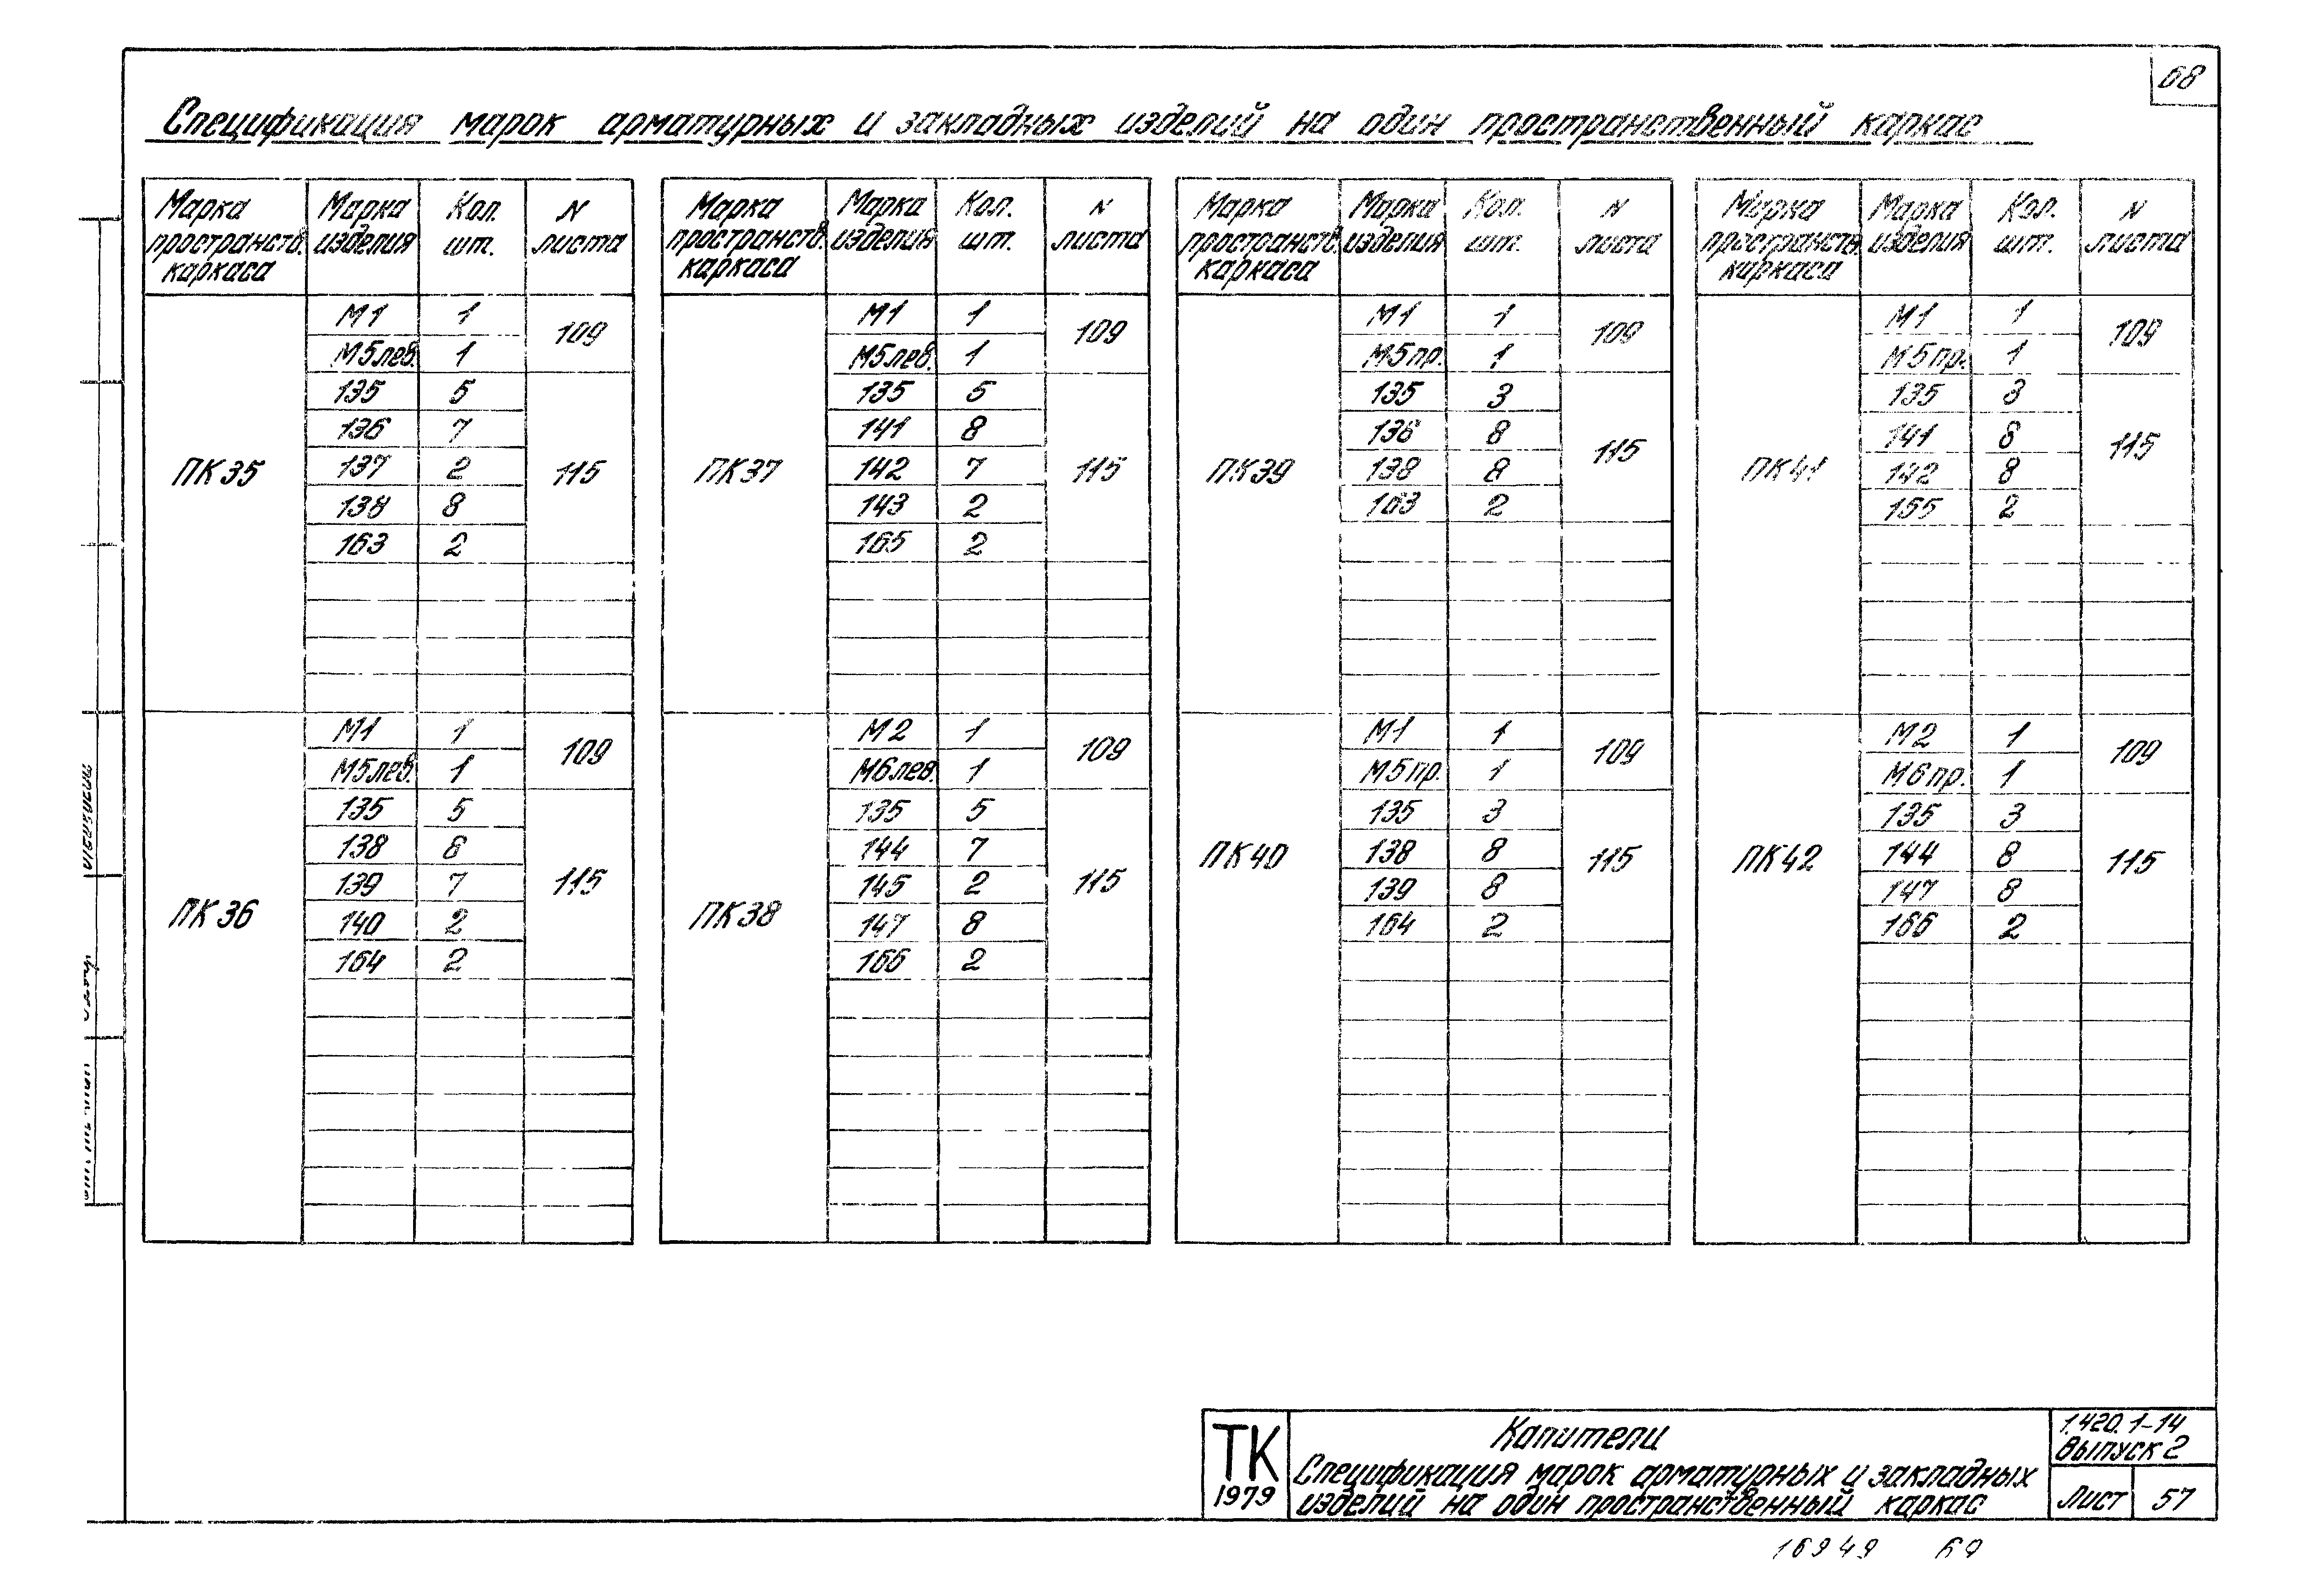 68
Спецификация марок арматурных и закладных изделий на один пространственный каркас
Марка пространств. каркаса | Марка изделия | Кол. шт. | N листа
ПК35 | М1 | 1 | 109
М5лев. | 1
135 | 5 | 115
136 | 7
137 | 2
138 | 8
163 | 2
ПК36 | М1 | 1 | 109
М5лев. | 1
135 | 5 | 115
138 | 8
139 | 7
140 | 2
164 | 2
Марка пространств. каркаса | Марка изделия | Кол. шт. | N листа
ПК37 | М1 | 1 | 109
М5лев. | 1
135 | 5 | 115
141 | 8
142 | 7
143 | 2
165 | 2
ПК38 | М2 | 1 | 109
М6лев. | 1
135 | 5 | 115
144 | 7
145 | 2
147 | 8
166 | 2
Марка пространств. каркаса | Марка изделия | Кол. шт. | N листа
ПК39 | М1 | 1 | 109
М5пр. | 1
135 | 3 | 115
136 | 8
138 | 8
163 | 2
ПК40 | М1 | 1 | 109
М5пр. | 1
135 | 3 | 115
138 | 8
139 | 8
164 | 2
Марка пространств. каркаса | Марка изделия | Кол. шт. | N листа
ПК41 | М1 | 1 | 109
М5пр. | 1
135 | 3 | 115
141 | 8
142 | 8
155 | 2
ПК42 | М2 | 1 | 109
М6пр. | 1
135 | 3 | 115
144 | 8
147 | 8
166 | 2
ТК
1979
Капители
Спецификация марок арматурных и закладных
изделий на один пространственный каркас
1.420.1-14
Выпуск 2
Лист 57
16949 69